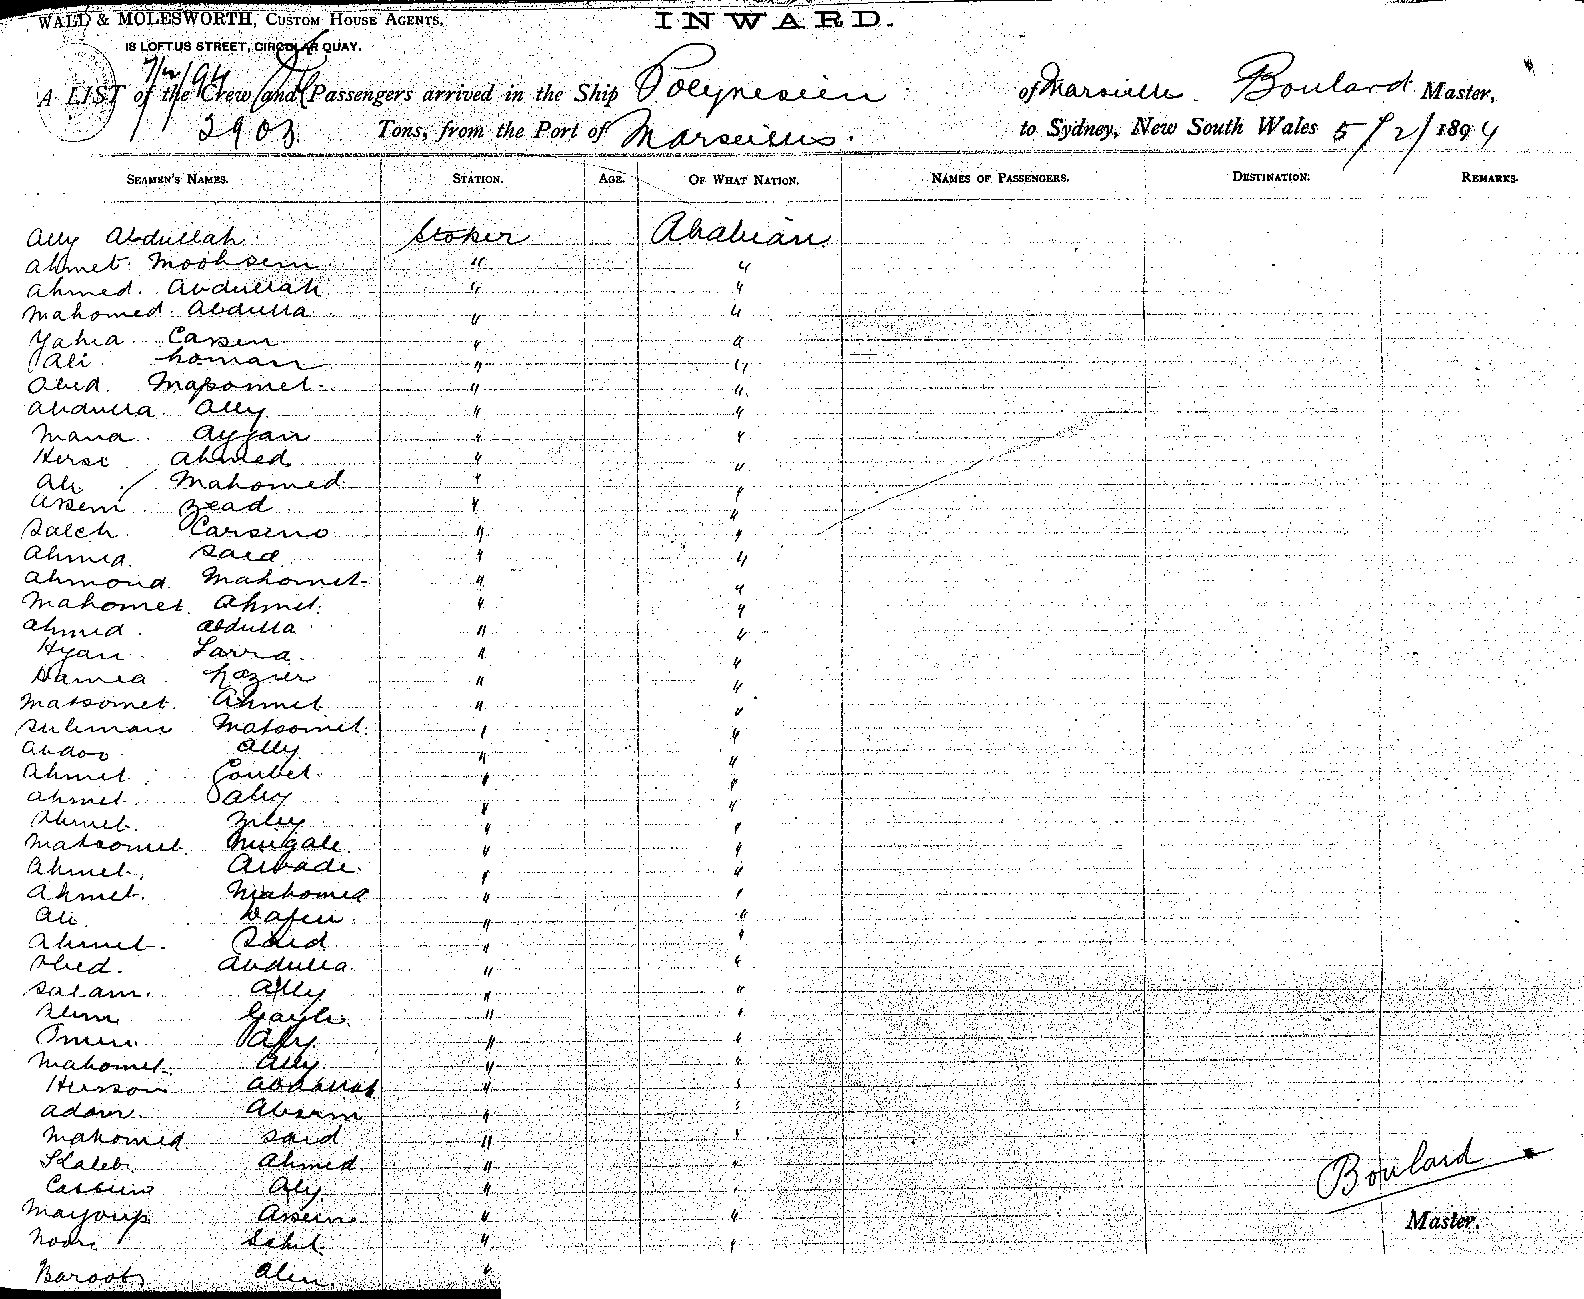 WALD & MOLESWORTH, CUSTOM HOUSE AGENTS.
INWARD.
18 LOFTUS STREET, CIRCULAR QUAY.
7/2/94
A LIST of the Crew and Passengers arrived in the Ship Polynesien of Marseille Boulard Master,
2903 Tons, from the Port of Marseilles. to Sydney, New South Wales 5/2/1894
SEAMEN'S NAMES. STATION. AGE. OF WHAT NATION. NAMES OF PASSENGERS. DESTINATION. REMARKS.
Ally Abdullah Stoker Arabian
Ahmet Moohsem " "
Ahmed Abdullah " "
Mahomed Abdulla " "
Yahia Carsen " "
Ali homan " "
Obed Mapomet " "
Abdulla Ally " "
Mana Ayyan " "
Hersi Ahmed " "
Ali Mahomed " "
Arsem Zead " "
Saleh Carseno " "
Ahmed Said " "
Ahmond Mahomet " "
Mahomet Ahmet " "
Ahmed Abdulla " "
Hyan Sarra " "
Hamea " "
Matsomet Ahmet " "
Suliman Matsomet " "
Abdoo Ally " "
Ahmet Coubet " "
Ahmet Saley " "
Ahmet " "
Matsomet Murgale " "
Ahmet Awade " "
Ahmet Mahomed " "
Ali " "
Ahmet Said " "
Obed Abdulla " "
Salam Ally " "
Slem " "
" "
Mahomet Ally " "
Husson " "
Adam Absem " "
Mahomed Said " "
Ahmed " "
Boulard
Aly " "
Arsem " "
Master.
Noor " "
"